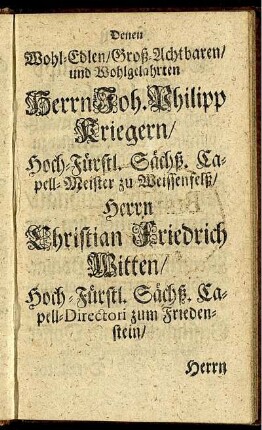 Denen
Wohl-Edlen/Groß-Achtbaren/
und Wohlgelahrten
Herrn Joh. Philipp
Kriegern/
Hoch-Fürstl. Sächß. Ca-
pell-Meister zu Weissenfelß/
Herrn
Christian Friedrich
Witten/
Hoch-Fürstl. Sächß. Ca-
pell-Directori zum Frieden-
stein/
Herrn